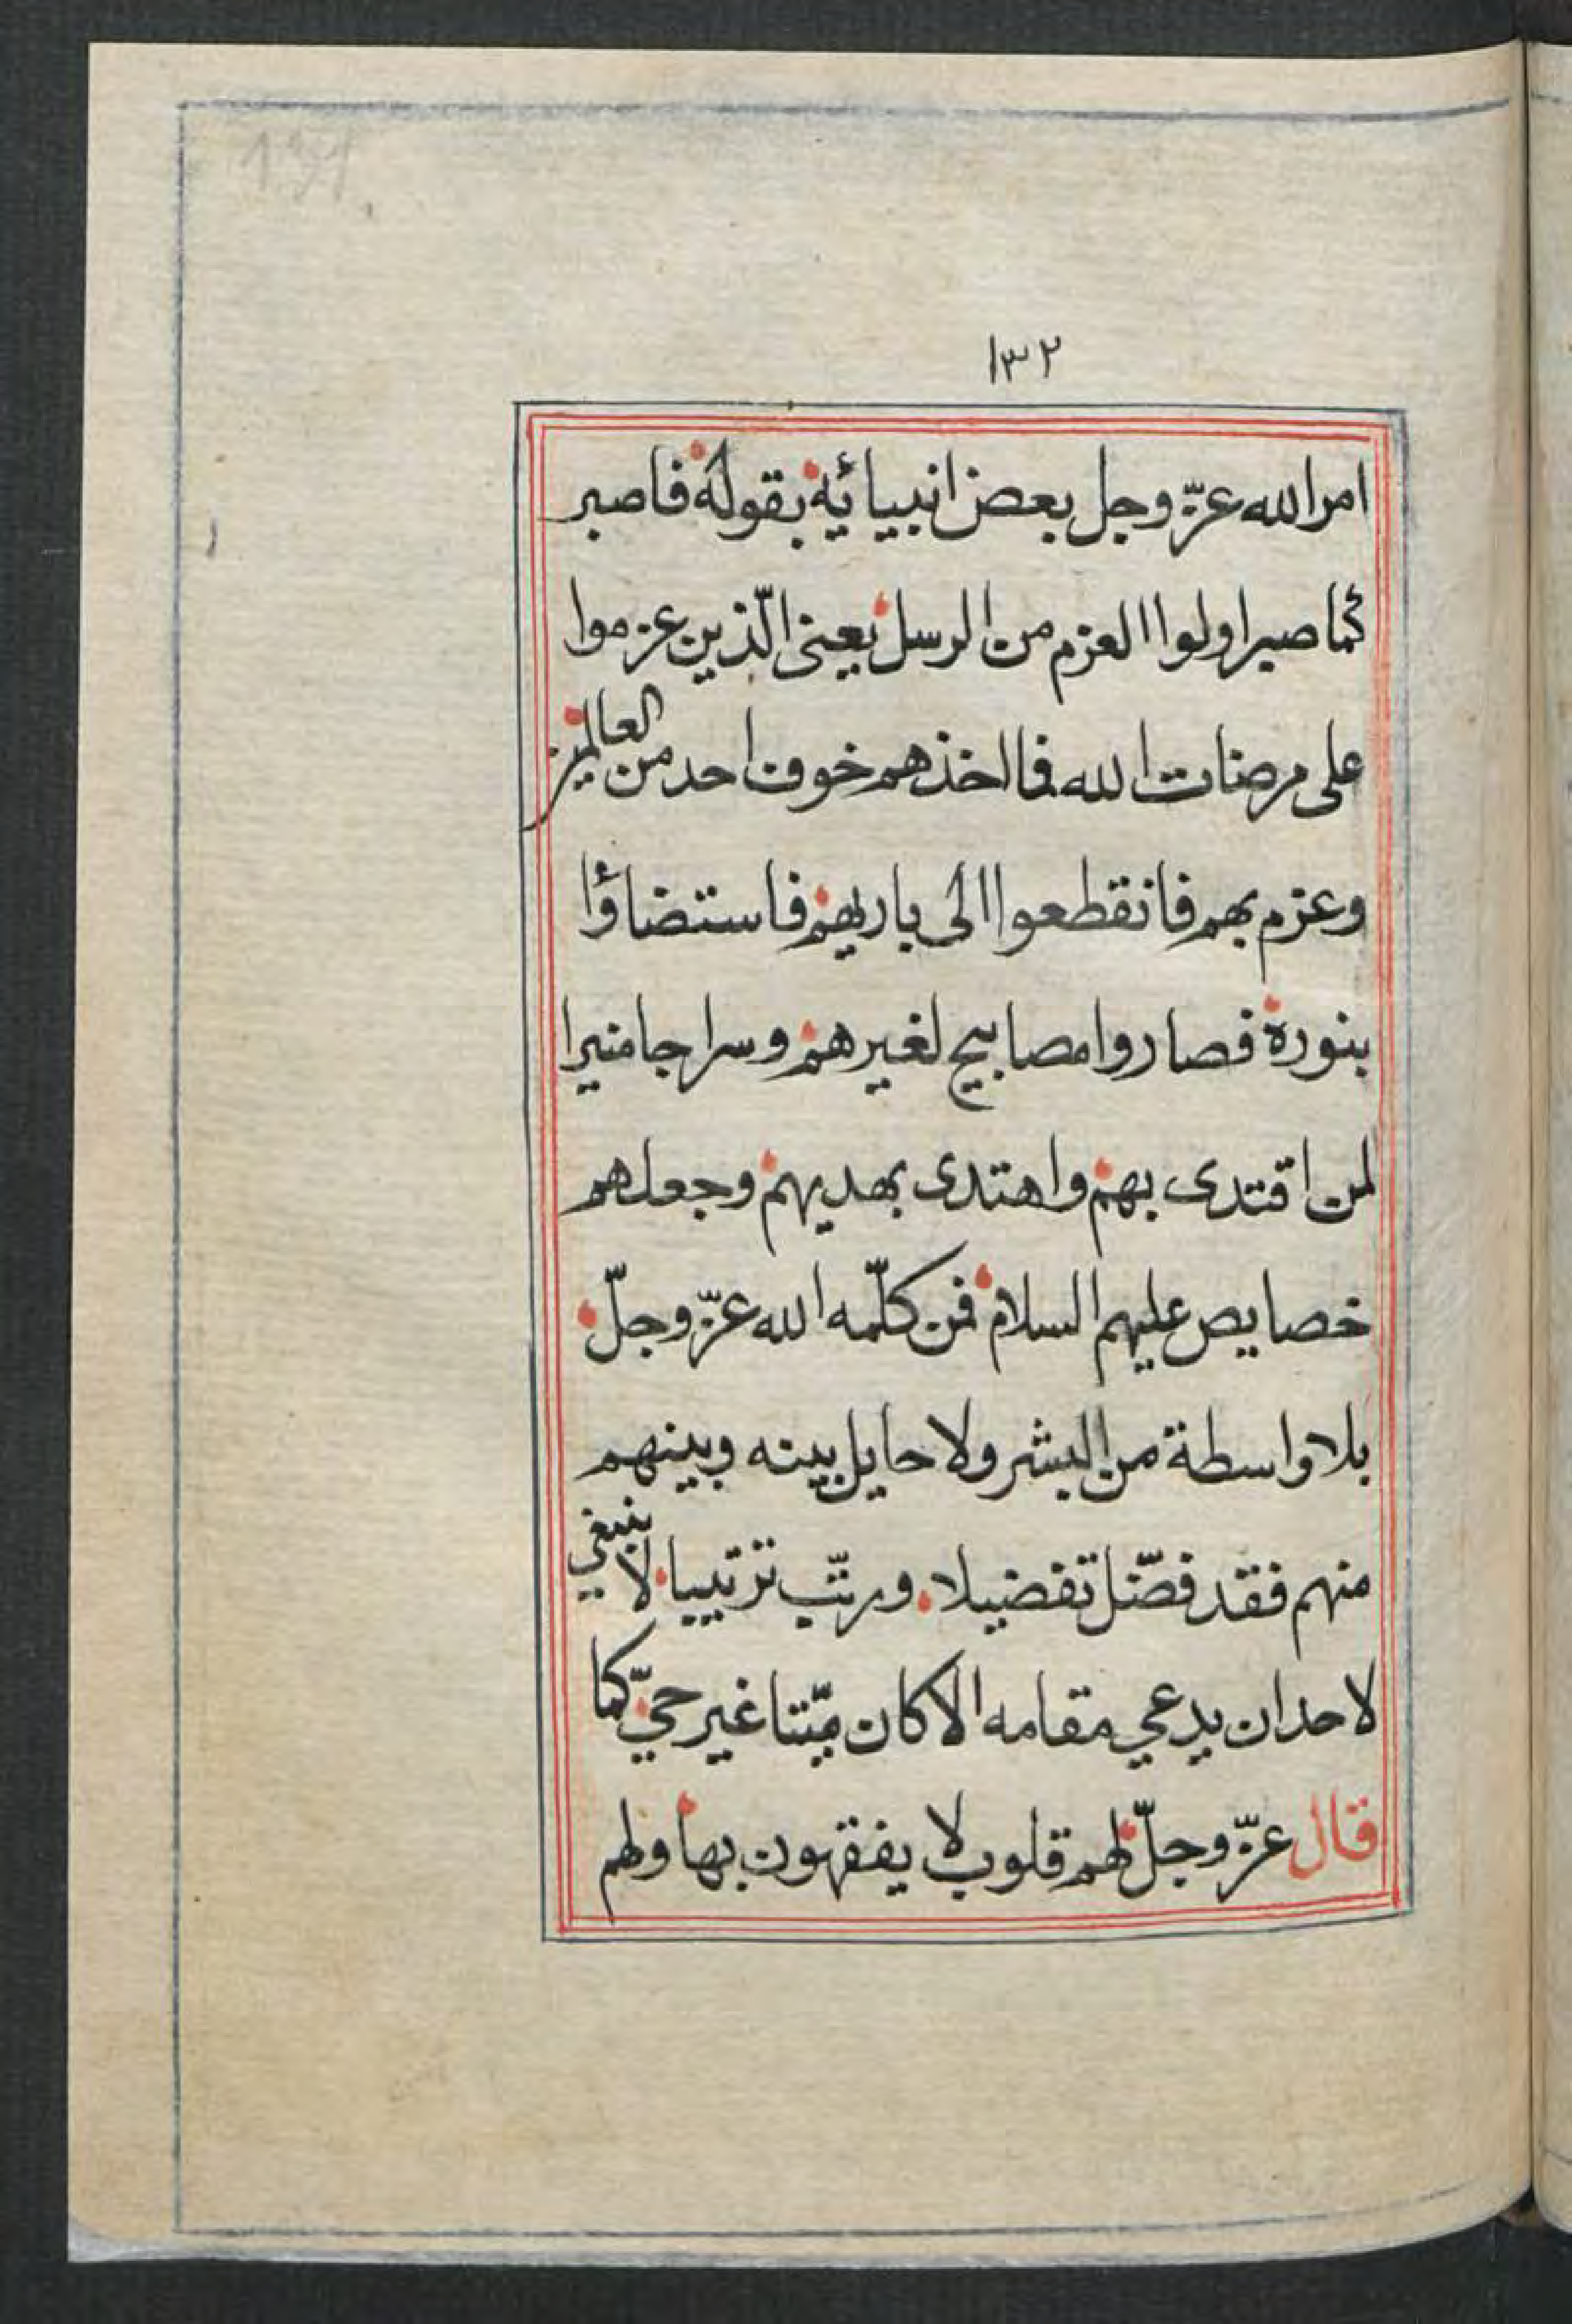 ١٣٢
امر الله عزّ وجل بعض انبيائه بقوله فاصبر
كما صبر اولوا العزم من الرسل يعنى الّذين عزموا
على مرضات الله فما اخذهم خوف احد من العالمين
وعزم بهم فانقطعوا الى باريهم فاستضاؤا
بنوره فصاروا مصابيح لغيرهم وسراجا منيرا
لمن اقتدى بهم واهتدى بهديهم وجعلهم
خصايص عليهم السلام فمن كلّمه الله عزّ وجلّ
بلا واسطة من البشر ولا حايل بينه وبينهم
منهم فقد فضّل تفضيلا ورتّب ترتيبا لا ينبغي
لاحد ان يدعي مقامه الا كان ميّتا غير حيّ كما
قال عزّ وجلّ لهم قلوب لا يفقهون بها ولهم